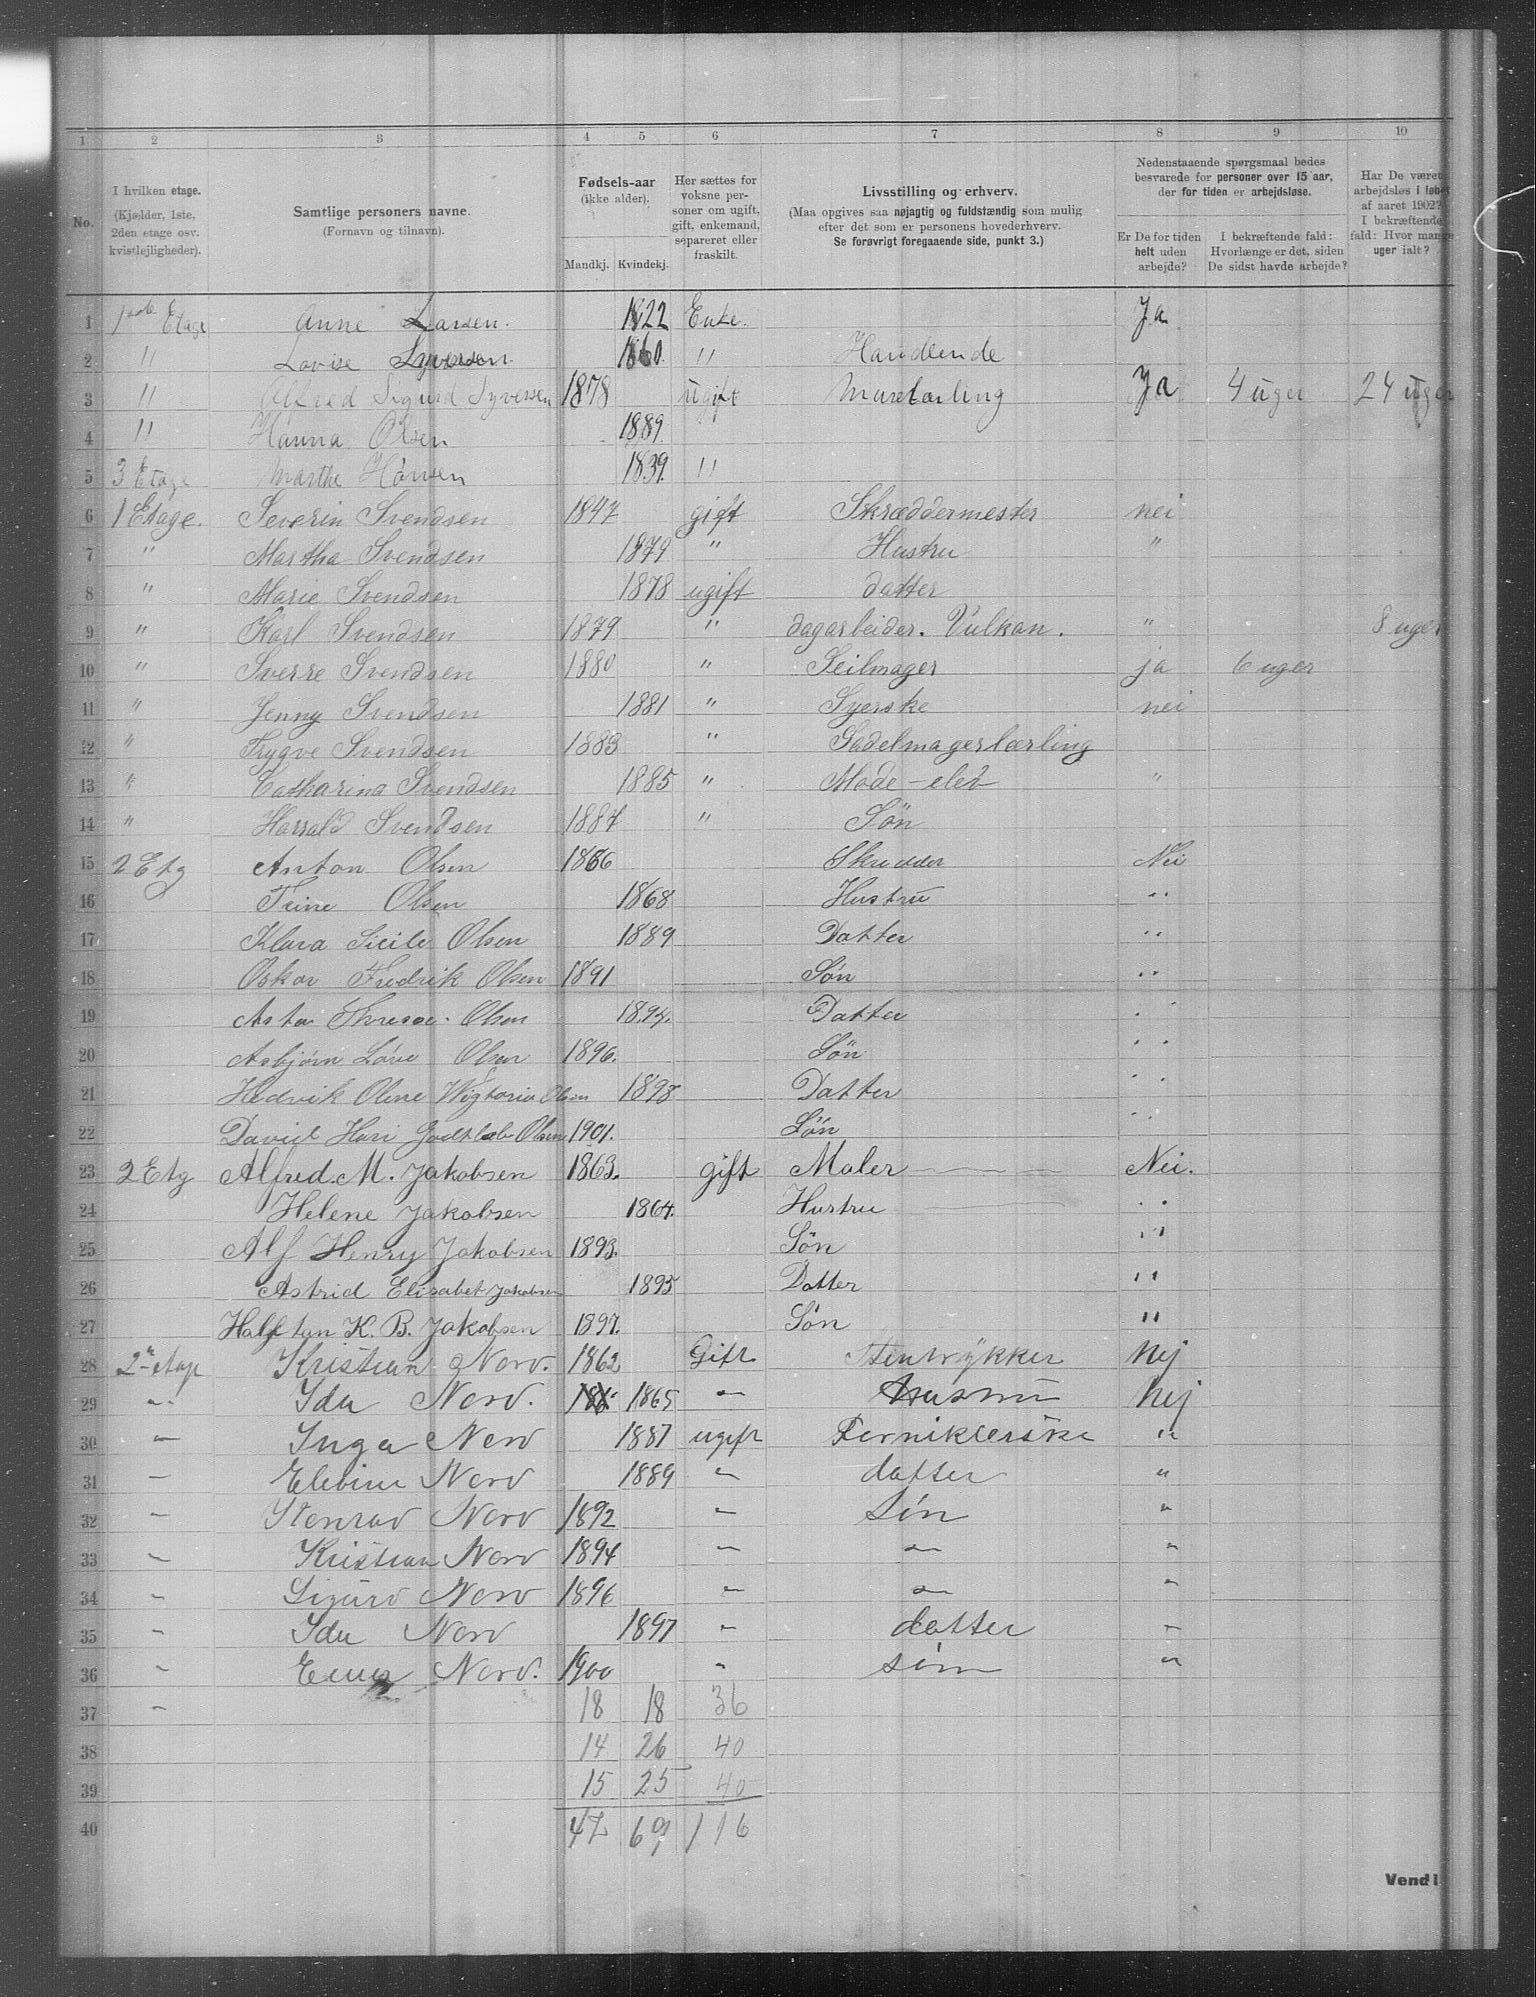 1 2 3 4 5 6 7 8 9 10
No.
I hvilken etage.
(Kjælder, 1ste,
2den etage osv.
kvistlejligheder).
Samtlige personers navne.
(Fornavn og tilnavn).
Fødsels-aar
(ikke alder).
Mandkj. Kvindekj.
Her sættes for
voksne per-
soner om ugift,
gift, enkemand,
separeret eller
fraskilt.
Livsstilling og erhverv.
(Maa opgives saa nøjagtig og fuldstændig som mulig
efter det som er personens hovederhverv.
Se forøvrigt foregaaende side, punkt 3.)
Nedenstaaende spørgsmaal bedes
besvarede for personer over 15 aar,
der for tiden er arbejdsløse.
Er De for tiden
helt uden
arbejde?
I bekræftende fald:
Hvorlænge er det, siden
De sidst havde arbejde?
Har De været
arbejdsløs i løbet
af aaret 1902?
I bekræftende
fald: Hvor mange
uger ialt?
1 Etage Anne Larsen. 1822 Enke. Ja
2 " Lovise Syversen 1860. " Handlende
3 " Alfred Sigurd Syversen 1878 ugift Ja 4 uger 24 uger
4 " Hanna Olsen 1889.
5 3 Etage Marthe Hansen 1839. "
6 1 Etage. Severin Svendsen 1847 gift Skræddermester nei
7 " Martha Svendsen 1879 " Hustru "
8 " Marie Svendsen 1878 ugift datter
9 " Karl Svendsen 1879 " dagarbeider. Vulkan. " 8 uger
10 " Sverre Svendsen 1880 " Seilmager ja 6 uger
11 " Jenny Svendsen 1881 " Syerske nei
12 " Trygve Svendsen 1883 " Sadelmagerlærling
13 " Catharina Svendsen 1885 " Mode-elev "
14 " Harald Svendsen 1887 " Søn
15 2 Etg Anton Olsen 1866 Skrædder Nei
16 Trine Olsen 1868 Hustru "
17 Klara Sicile Olsen 1889 Datter "
18 Oskar Fredrik Olsen 1891 Søn "
19 Asta Olsen 1894. Datter "
20 Asbjørn Olsen 1896. Søn "
21 Hedvik Oline Wigtoria Olsen 1898 Datter "
22 David Olsen 1901. Søn "
23 2 Etg Alfred. M. Jakobsen 1863. gift Maler Nei.
24 Helene Jakobsen 1864. Hustru "
25 Alf Henry Jakobsen 1893. Søn "
26 Astrid Elisabet Jakobsen 1895 Datter "
27 Halfdan K. B. Jakobsen 1897. Søn "
28 2 etage Kristian Norv. 1862 Gift Stentrykker Nej
29 " Ida Norv. 1865 " Hustru Nej
30 " Inga Norv 1887 ugift Fernisklerske "
31 " Norv 1889 " datter "
32 " Norv 1892 " Søn "
33 " Kristian Norv 1894 " " "
34 " Sigurd Norv 1896 " " "
35 " Ida Norv 1897 " datter "
36 " Norv. 1900 " søn "
37 " 18 18 36
38 14 26 40
39 15 25 40
40 47 69 116
Vend!